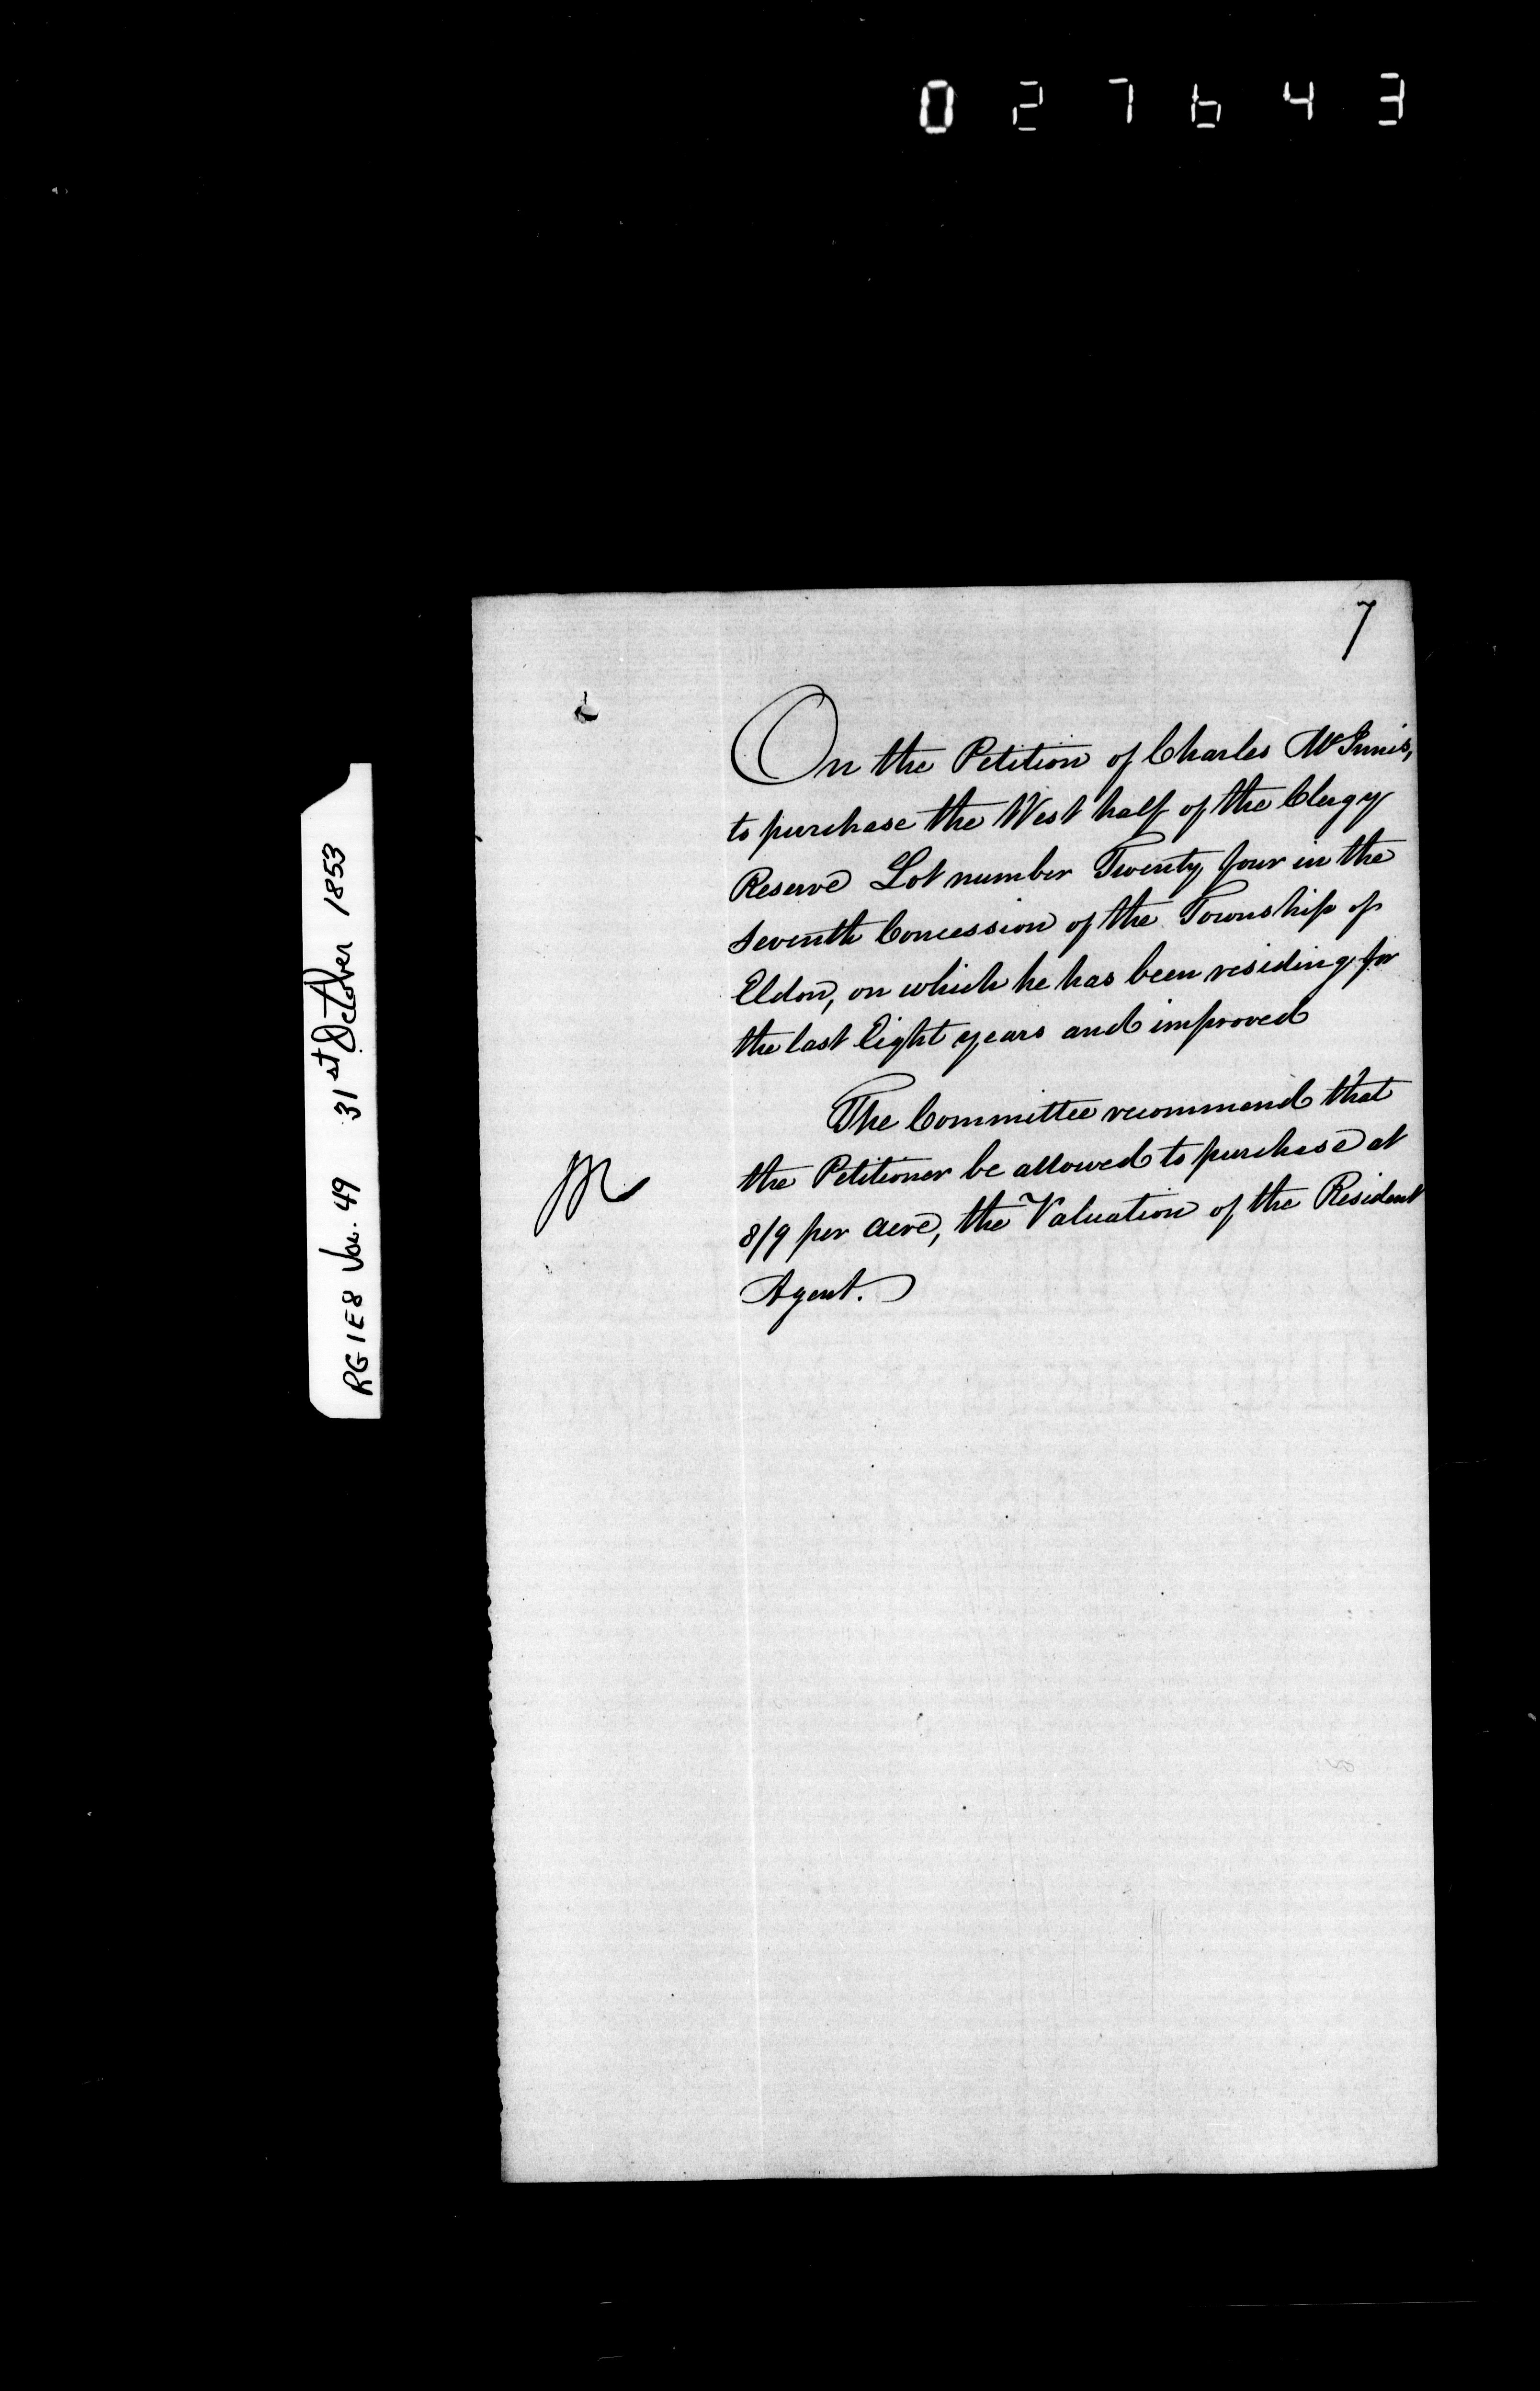 027643
7
On the Petition of Charles McInnis,
to purchase the West half of the Clergy
Reserve Lot number Twenty four in the
Seventh Concession of the Township of
Eldon, on which he has been residing for
the last Eight years and improved
The Committee recommend that
the Petitioner be allowed to purchase at
8/9 per acre, the Valuation of the Resident
Agent.
RG 1 E8 Vol. 49 31st October 1853